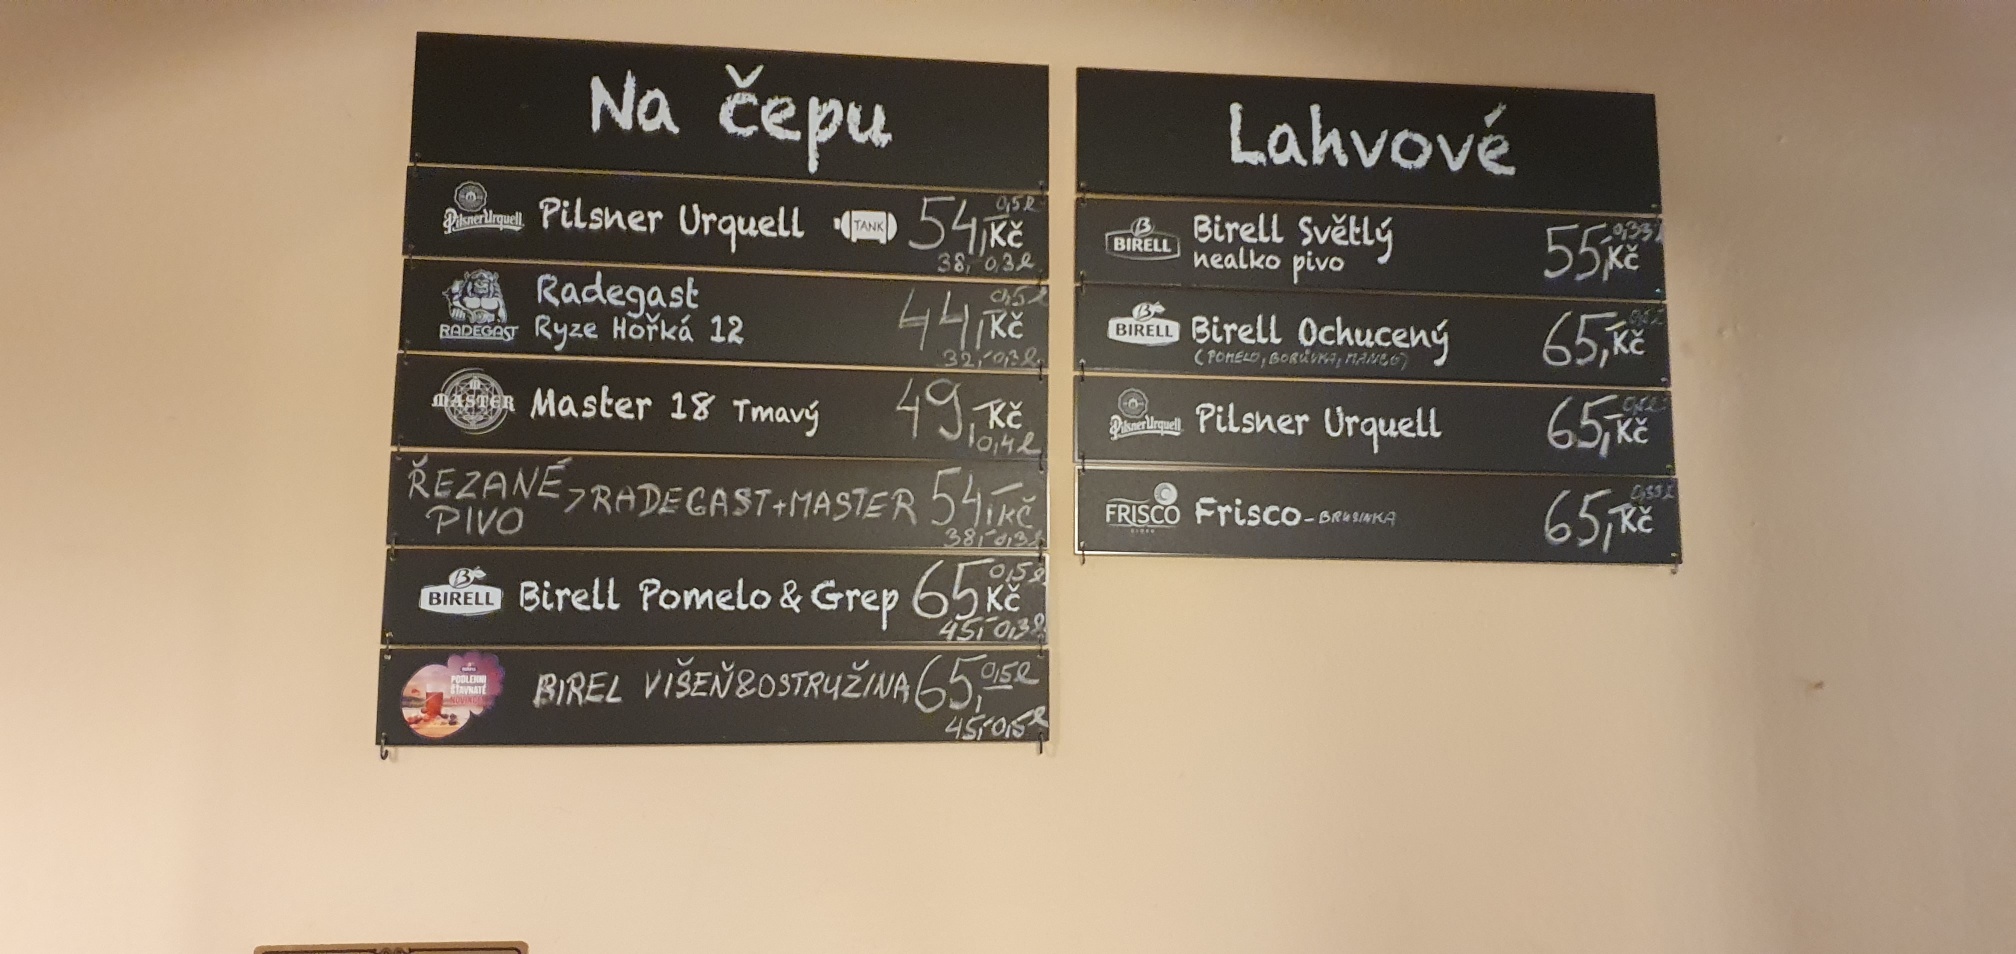 Na čepu
Pilsner Urquell Pilsner Urquell TANK 54,- Kč 0,5 l
38,- 0,3 l
RADEGAST Radegast 44,- Kč 0,5 l
Ryze Hořká 12
32,- 0,3 l
MASTER Master 18 Tmavý 49,- Kč
0,4 l
ŘEZANÉ PIVO > RADEGAST + MASTER 54,- Kč
38,- 0,3 l
BIRELL Birell Pomelo & Grep 65 Kč 0,5 l
45,- 0,3 l
BIREL VIŠEŇ & OSTRUŽINA 65,- 0,5 l
45,- 0,5 l
Lahvové
BIRELL Birell Světlý 55,- Kč 0,33 l
nealko pivo
BIRELL Birell Ochucený 65,- Kč
(POMELO, BORŮVKA, MANGO)
Pilsner Urquell Pilsner Urquell 65,- Kč
FRISCO Frisco - BRUSINKA 65,- Kč 0,33 l